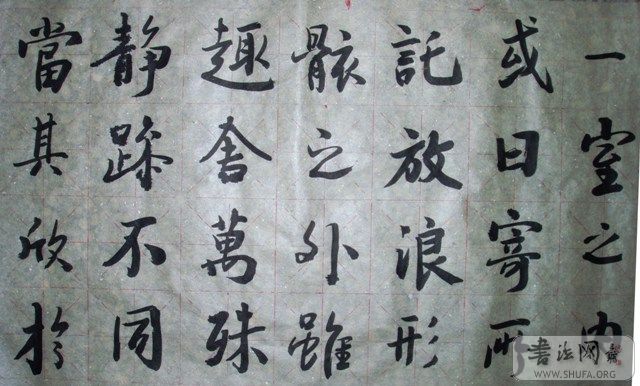 一室之内
或日寄所
託放浪形
骸之外雖
趣舍萬殊
静躁不同
當其欣於
書法网
WWW.SHUFA.ORG